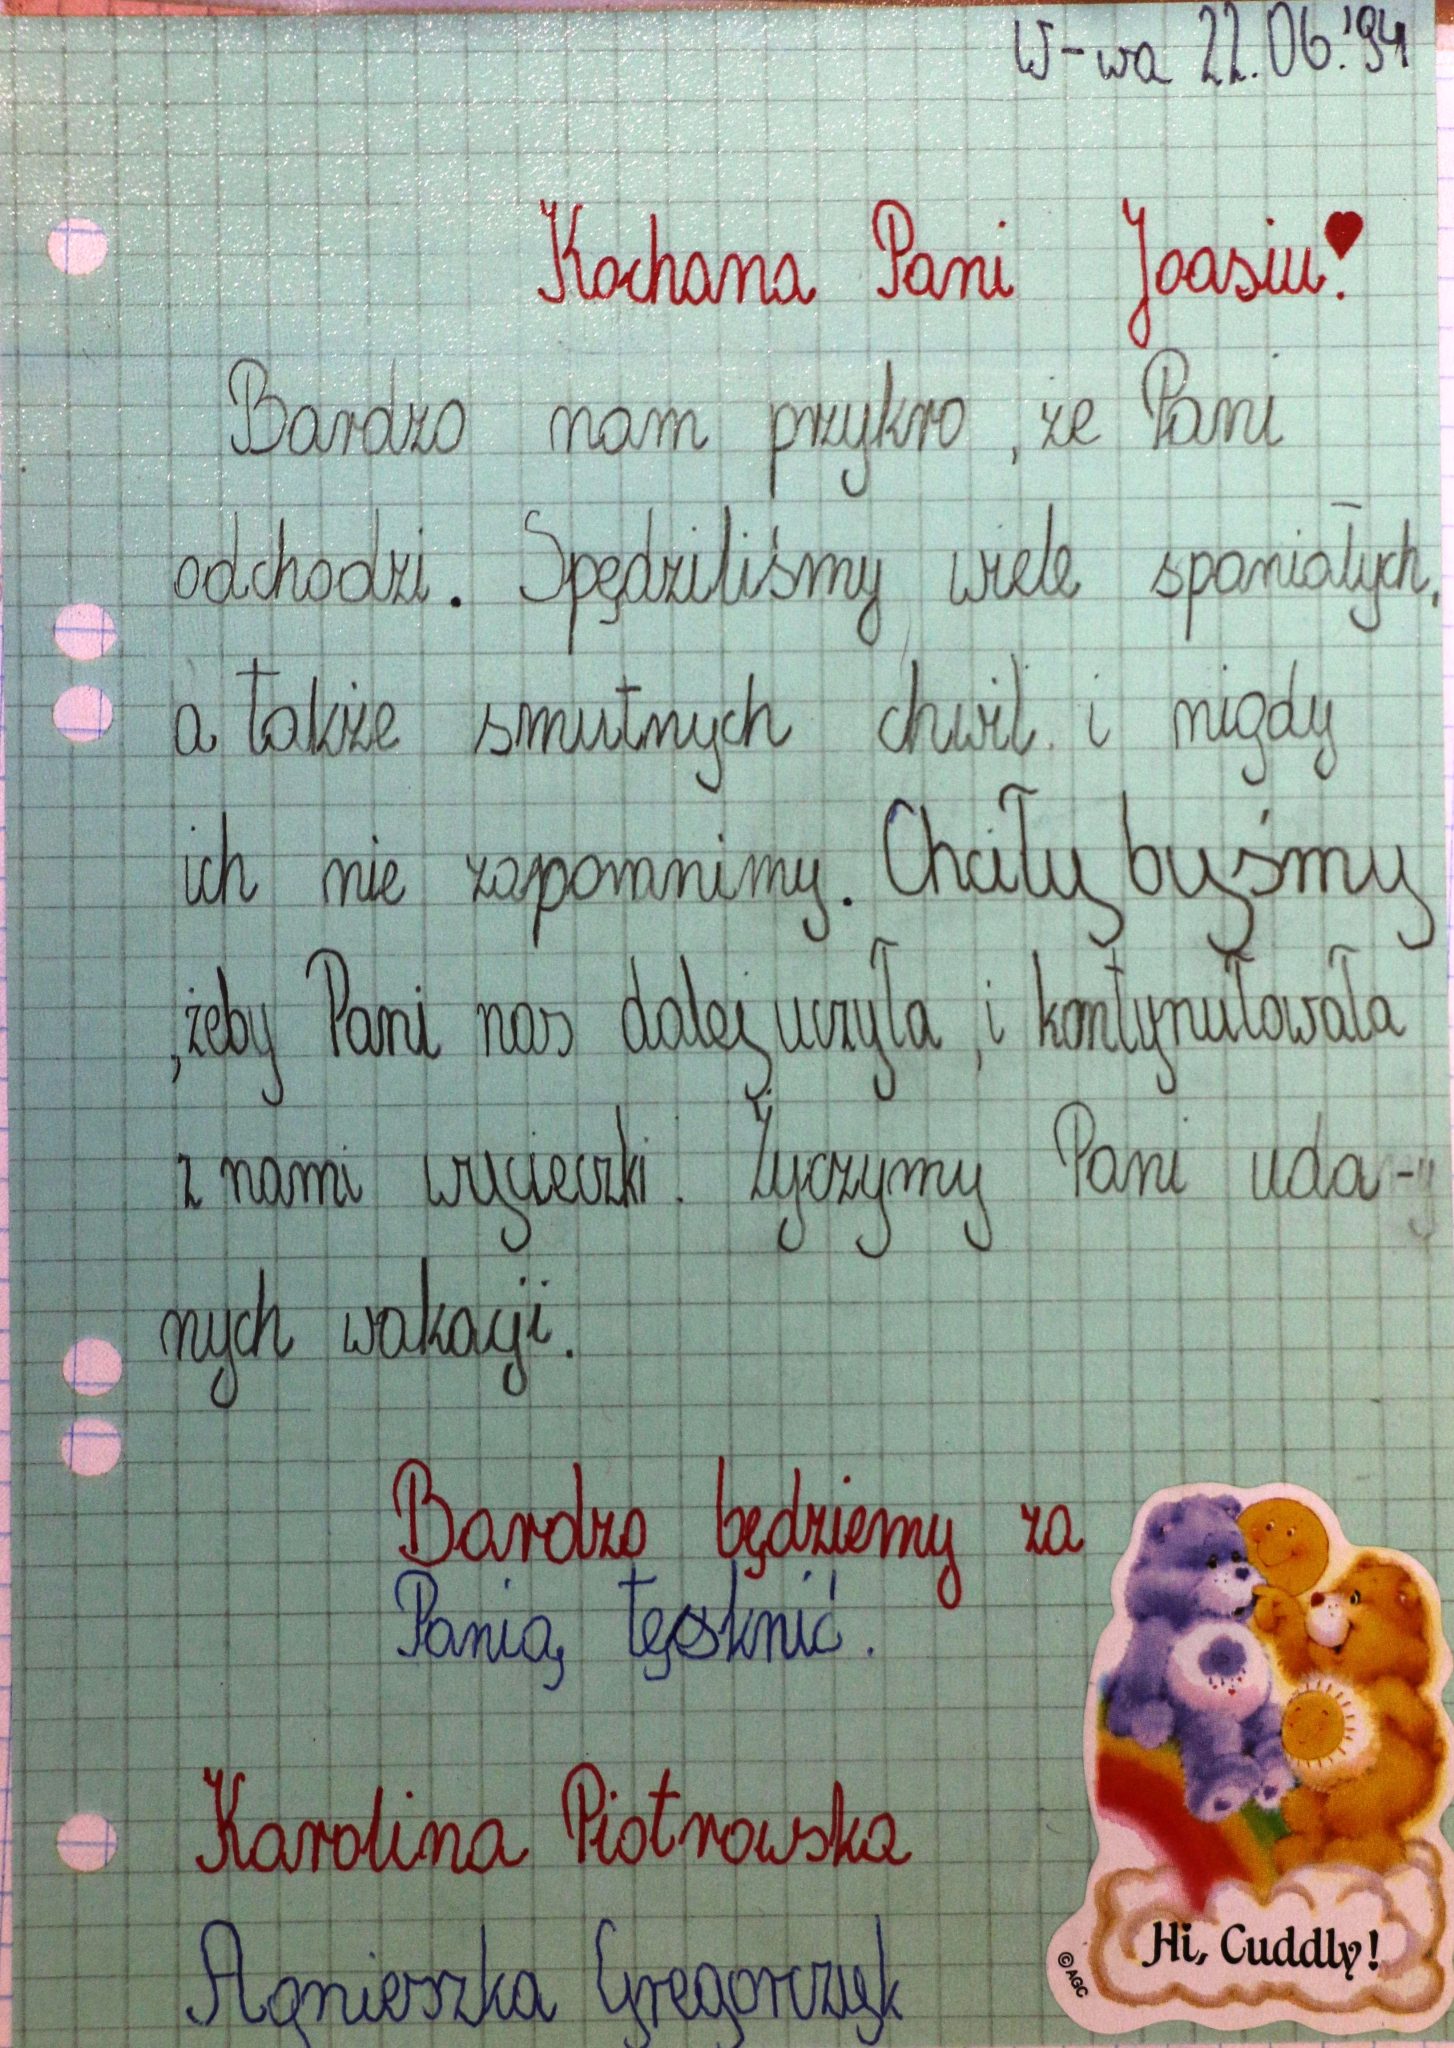 W-wa 22.06.'94
Kochana Pani Joasiu!
Bardzo nam przykro, że Pani
odchodzi. Spędziliśmy wiele spaniałych,
a także smutnych chwil i nigdy
ich nie zapomnimy. Chciłybyśmy
, żeby Pani nas dalej uczyła, i kontynułowała
z nami wycieczki. Życzymy Pani uda-
nych wakacji.
Bardzo będziemy za
Panią tęsknić.
Karolina Piotrowska
Agnieszka Gregorczyk
Hi, Cuddly!
©AGC